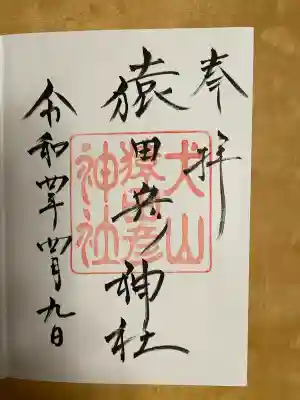 奉拝
猿田彦神社
犬山
猿田彦
神社
令和四年四月九日